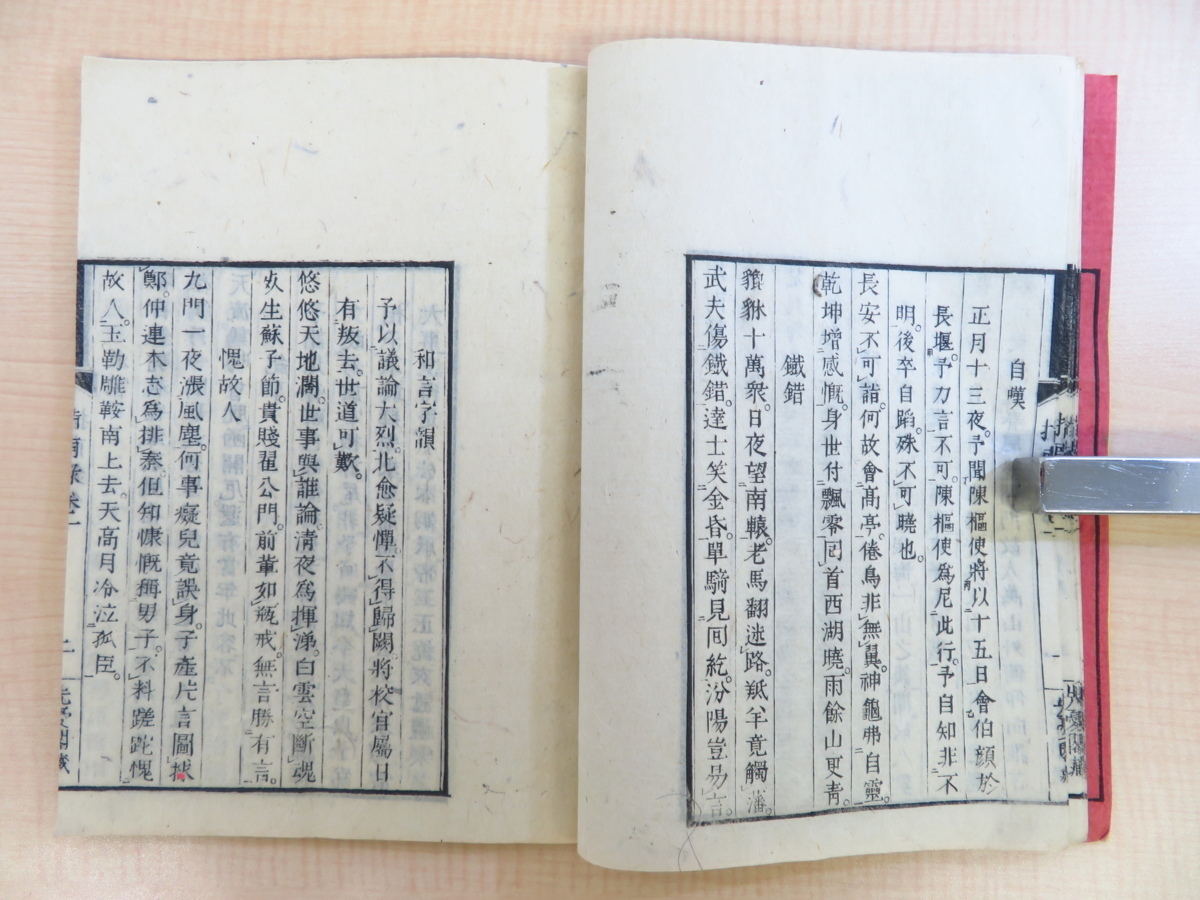 自嘆
正月十三夜。予聞陳樞使將以十五日會伯顏於
長堰。予力言不可。陳樞使爲尼此行。予自知非不
明。後卒自蹈。殊不可曉也。
長安不可詣。何故會高亭。倦鳥非無翼。神龜弗自靈。
乾坤增感慨。身世付飄零。回首西湖曉。雨餘山更青。
鐵錯
貔貅十萬衆。日夜望南轅。老馬翻迷路。羝羊竟觸藩。
武夫傷鐵錯。達士笑金昏。單騎見回紇。汾陽豈易言。
和言字韻
予以議論大烈。北愈疑憚。不得歸闕。將校官屬日
有叛去。世道可歎。
悠悠天地闊。世事與誰論。清夜爲揮涕。白雲空斷魂。
死生蘇子節。貴賤翟公門。前輩如瓶戒。無言勝有言。
愧故人
九門一夜漲風塵。何事癡兒竟誤身。子產片言圖捄
鄭。仲連本志爲排秦。但知慷慨稱男子。不料蹉跎愧
故人。玉勒雕鞍南上去。天高月冷泣孤臣。
指南录卷一
二